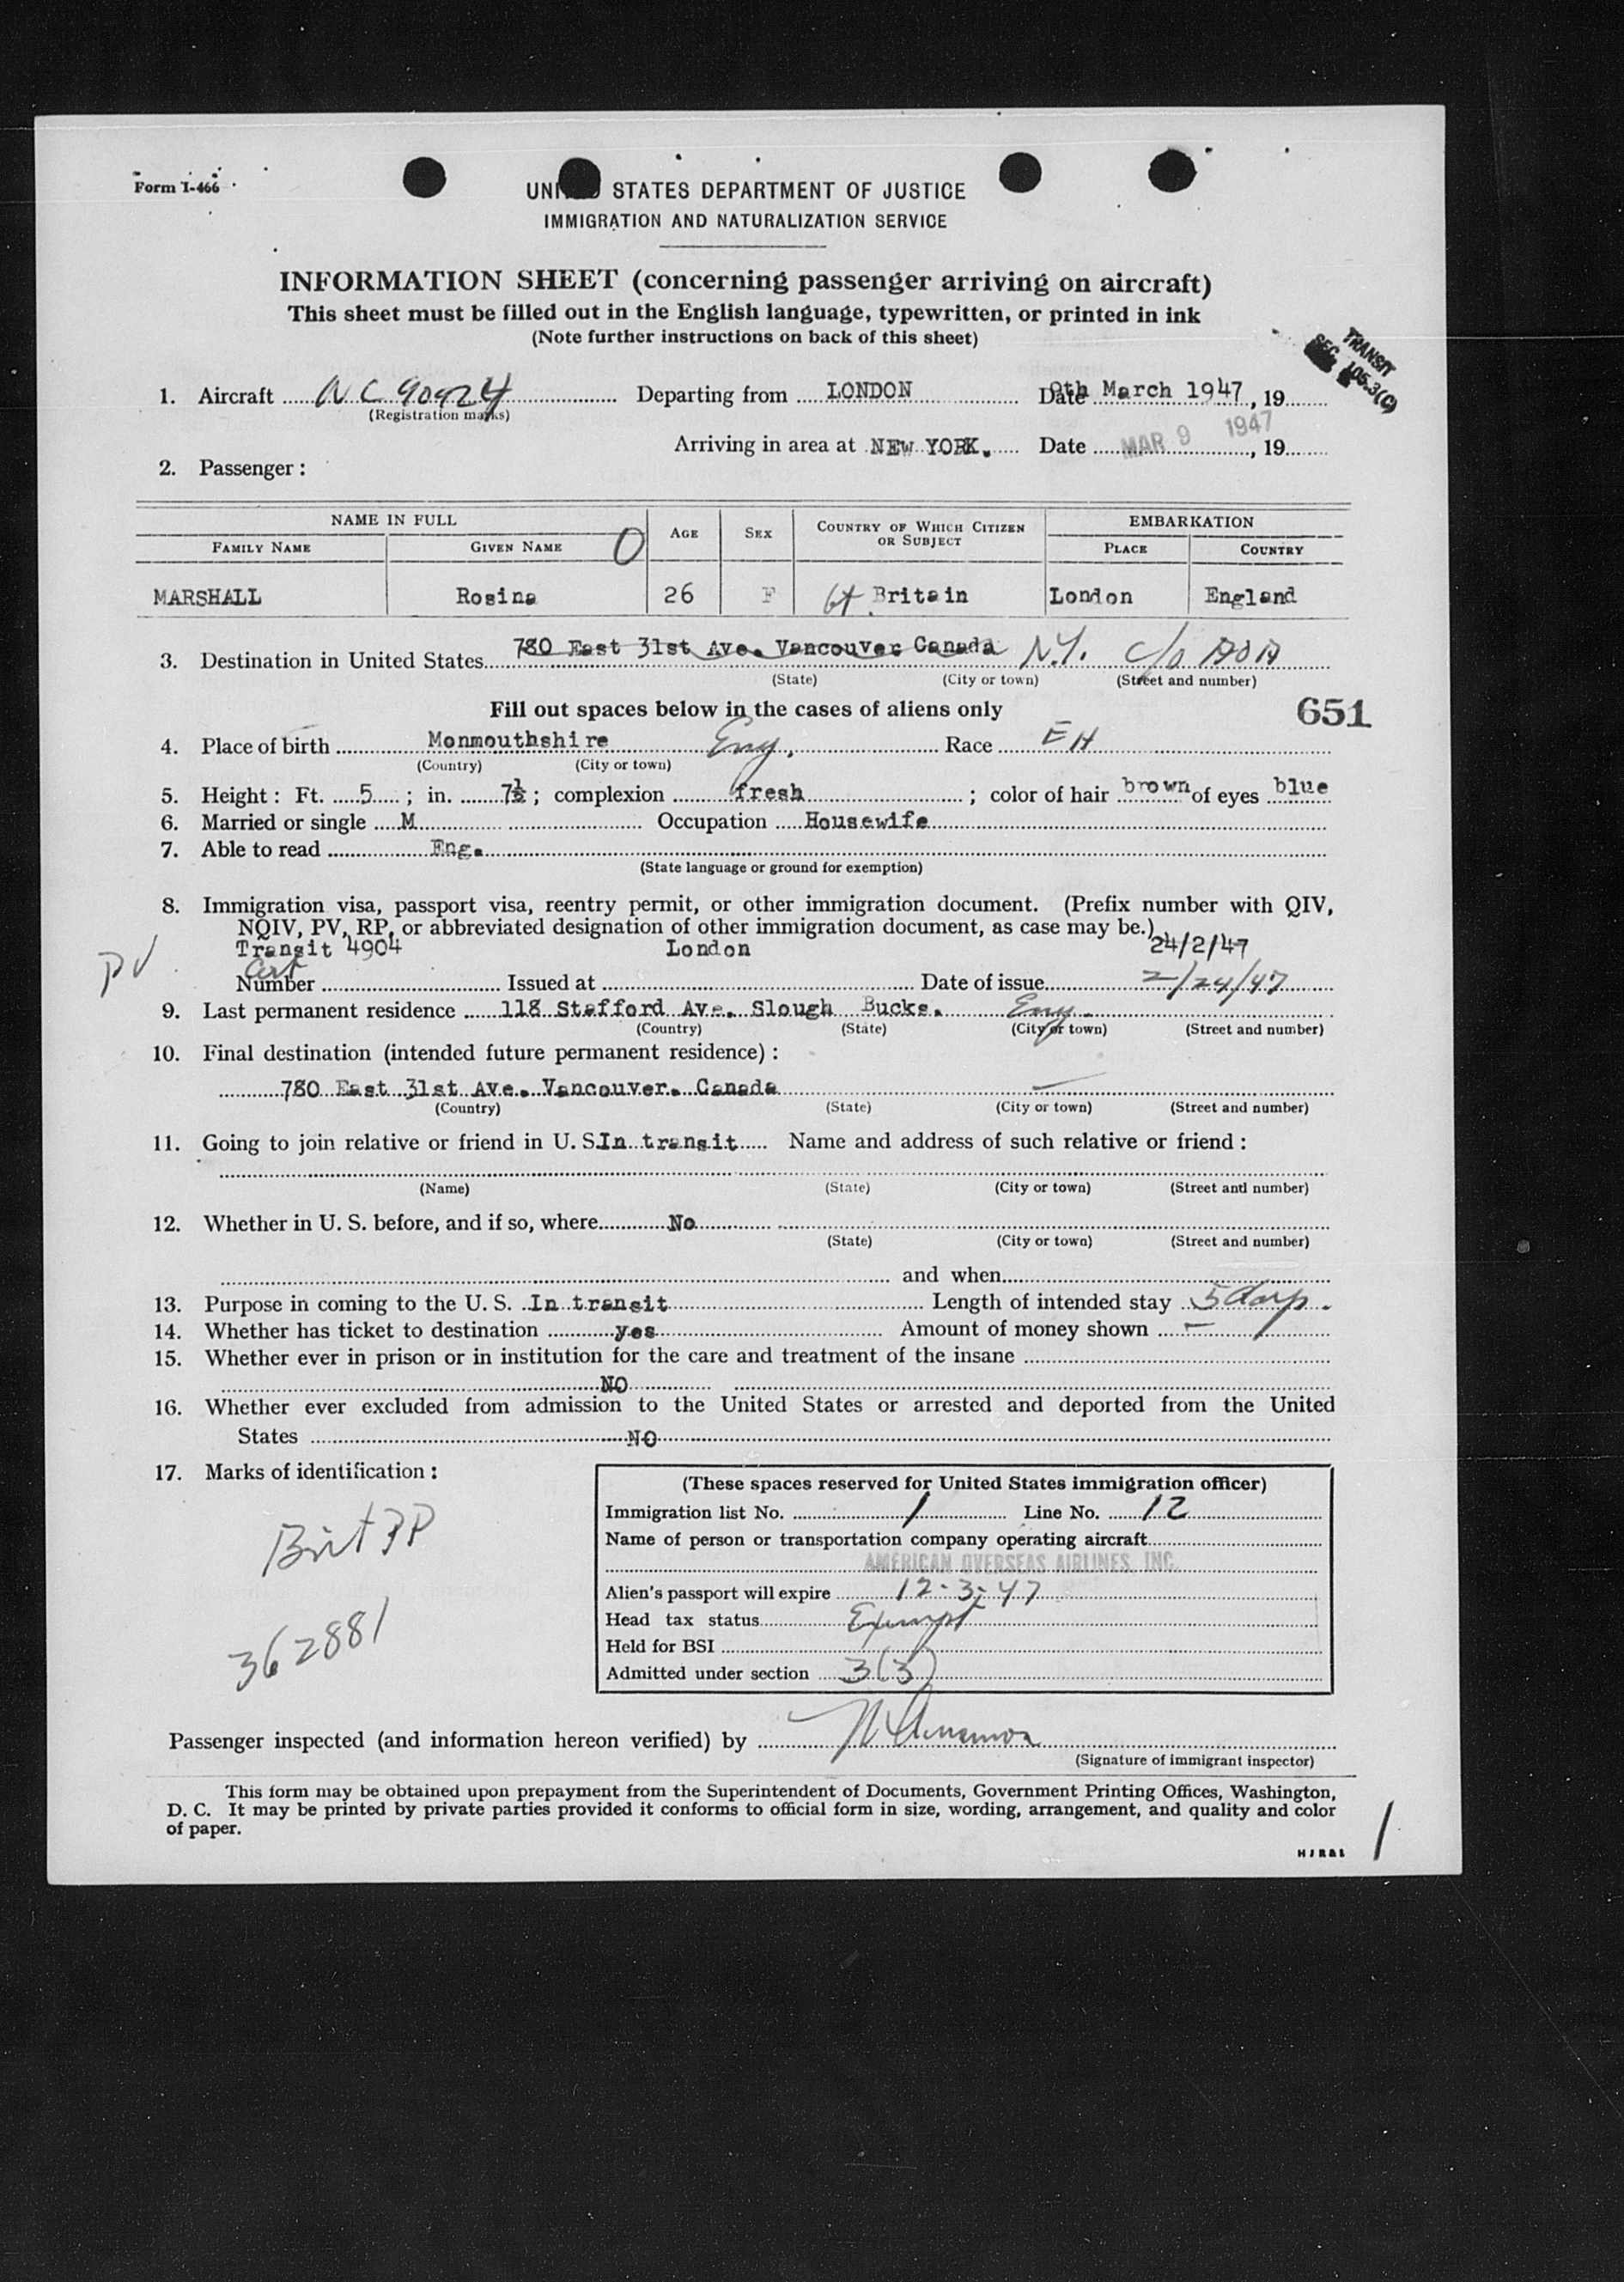 Form I-466
UNI STATES DEPARTMENT OF JUSTICE
IMMIGRATION AND NATURALIZATION SERVICE
INFORMATION SHEET (concerning passenger arriving on aircraft)
This sheet must be filled out in the English language, typewritten, or printed in ink
(Note further instructions on back of this sheet)
TRANSIT
SEC. 105.3(C)
1. Aircraft NC 90924 Departing from LONDON Date 9th March 1947, 19
(Registration marks)
Arriving in area at NEW YORK. Date MAR 9 1947, 19
2. Passenger:
NAME IN FULL AGE SEX COUNTRY OF WHICH CITIZEN OR SUBJECT EMBARKATION
FAMILY NAME GIVEN NAME O PLACE COUNTRY
MARSHALL Rosina 26 F Gt Britain London England
3. Destination in United States 780 East 31st Ave. Vancouver Canada N.Y. c/o AOA
(State) (City or town) (Street and number)
Fill out spaces below in the cases of aliens only
651
4. Place of birth Monmouthshire Eng. Race EH
(Country) (City or town)
5. Height: Ft. 5; in. 7½; complexion fresh; color of hair brown of eyes blue
6. Married or single M Occupation Housewife
7. Able to read Eng.
(State language or ground for exemption)
8. Immigration visa, passport visa, reentry permit, or other immigration document. (Prefix number with QIV,
NQIV, PV, RP, or abbreviated designation of other immigration document, as case may be.)
PV Transit 4904 London 24/2/47
Cert
Number Issued at Date of issue 2/24/47
9. Last permanent residence 118 Stafford Ave. Slough Bucks. Eng.
(Country) (State) (City or town) (Street and number)
10. Final destination (intended future permanent residence):
780 East 31st Ave. Vancouver. Canada
(Country) (State) (City or town) (Street and number)
11. Going to join relative or friend in U. S. In transit Name and address of such relative or friend:
(Name) (State) (City or town) (Street and number)
12. Whether in U. S. before, and if so, where No
(State) (City or town) (Street and number)
and when
13. Purpose in coming to the U. S. In transit Length of intended stay 5 days.
14. Whether has ticket to destination yes Amount of money shown —
15. Whether ever in prison or in institution for the care and treatment of the insane
NO
16. Whether ever excluded from admission to the United States or arrested and deported from the United
States NO
17. Marks of identification:
Brit PP
362881
(These spaces reserved for United States immigration officer)
Immigration list No. 1 Line No. 12
Name of person or transportation company operating aircraft
AMERICAN OVERSEAS AIRLINES, INC.
Alien's passport will expire 12-3-47
Head tax status Exempt
Held for BSI
Admitted under section 3(3)
Passenger inspected (and information hereon verified) by
(Signature of immigrant inspector)
This form may be obtained upon prepayment from the Superintendent of Documents, Government Printing Offices, Washington,
D. C. It may be printed by private parties provided it conforms to official form in size, wording, arrangement, and quality and color
of paper.
1